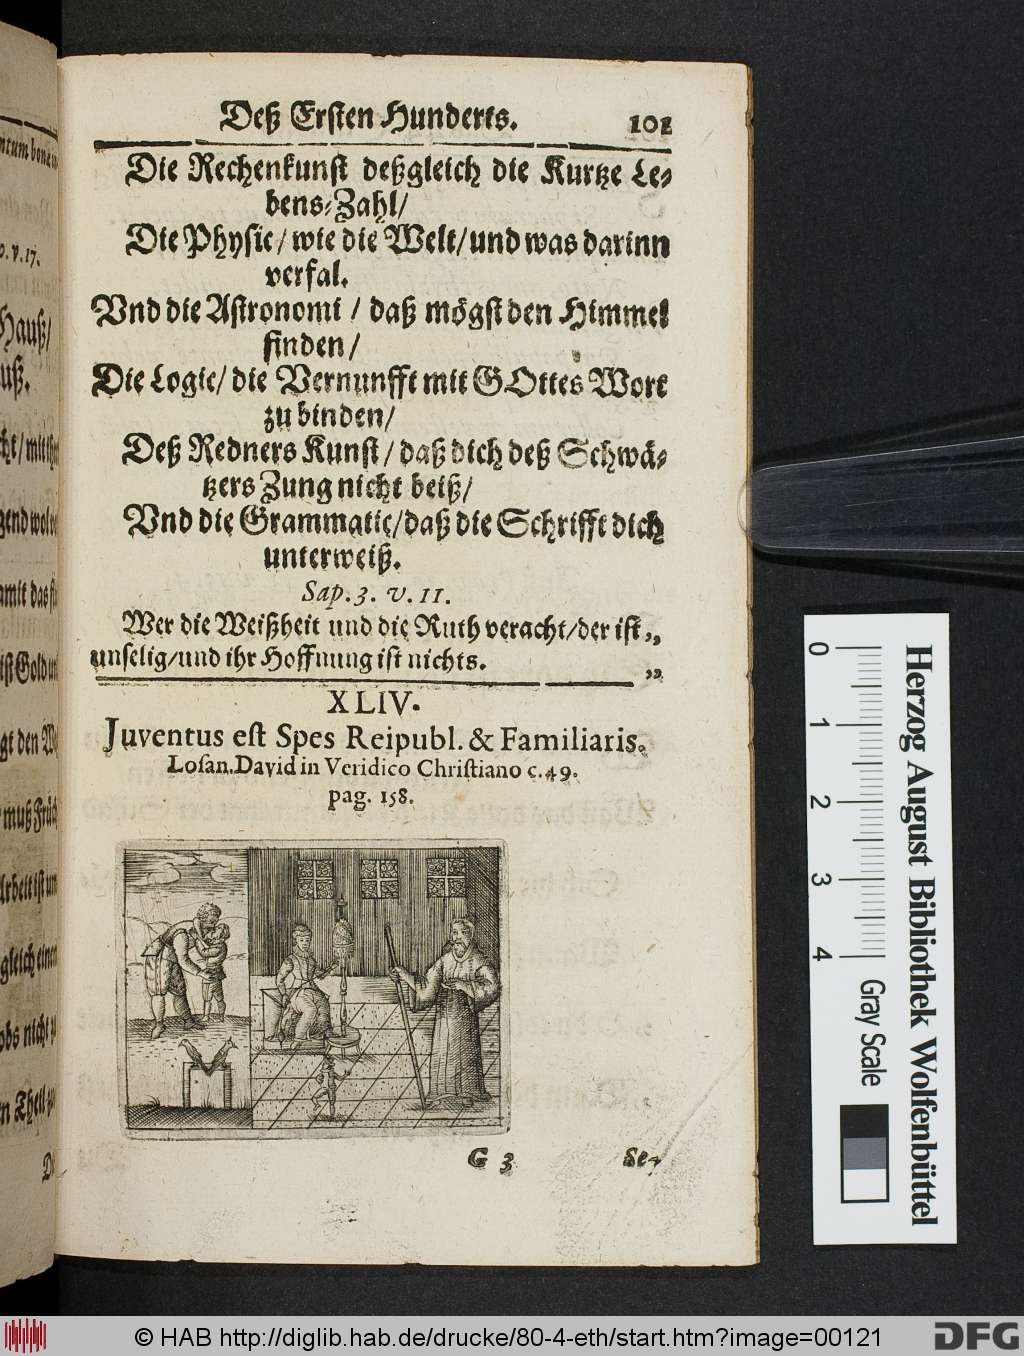 Deß Ersten Hunderts. 101
Die Rechenkunst deßgleich die Kurtze Le⸗
bens⸗Zahl/
Die Physic/ wie die Welt/ und was darinn
verfal.
Vnd die Astronomi / daß mögst den Himmel
finden/
Die Logic/ die Vernunfft mit GOttes Wort
zu binden/
Deß Redners Kunst/ daß dich deß Schwä⸗
tzers Zung nicht beiß/
Vnd die Grammatic/daß die Schrifft dich
unterweiß.
Sap. 3. v. 11.
Wer die Weißheit und die Ruth veracht/der ist „
unselig/und ihr Hoffnung ist nichts. „
XLIV.
Juventus est Spes Reipubl. & Familiaris.
Losan. David in Veridico Christiano c. 49.
pag. 158.
G 3 Se⸗
ntum bona
v. 17.
Hauß/
uß.
amit das
ist Gold
gt den
muß
Arbeit ist
gleich einen
obs nicht
n Theil
0
1
2
3
4
Herzog August Bibliothek Wolfenbüttel
Gray Scale
© HAB http://diglib.hab.de/drucke/80-4-eth/start.htm?image=00121
DFG